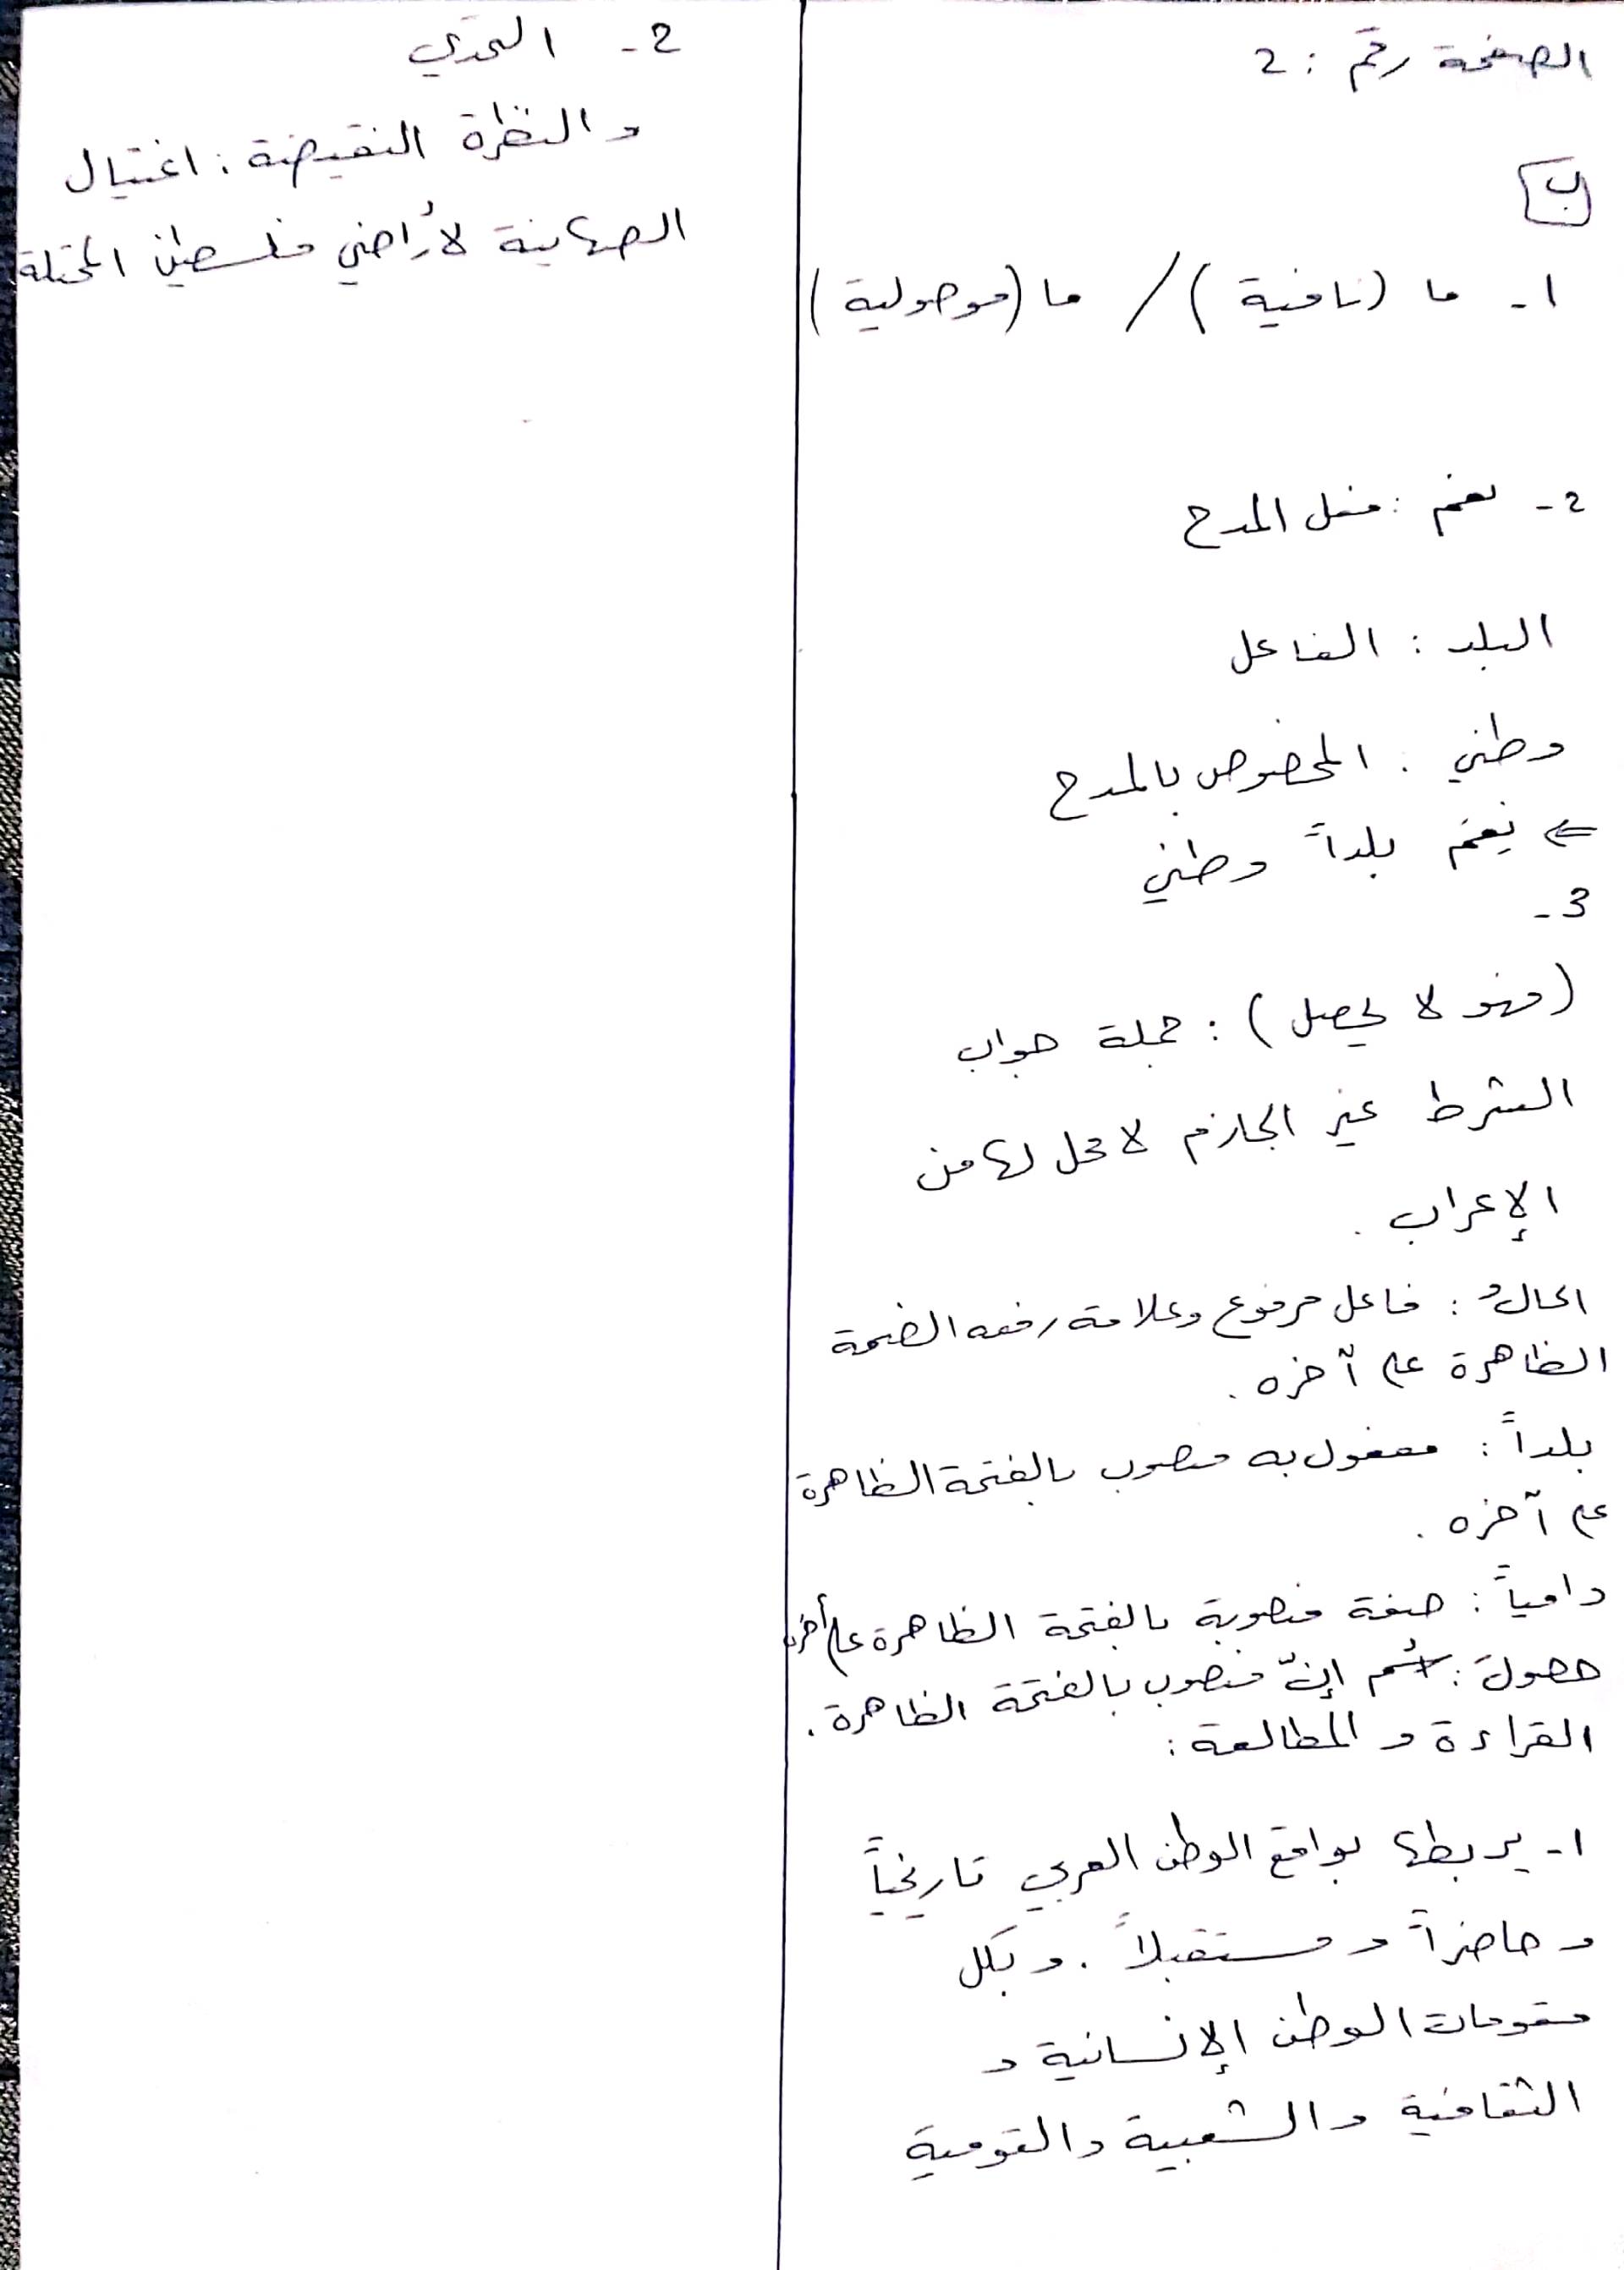 الصفحة رقم : 2
ب
1- ما (نافية) / ما (موصولية)
2- نعم : فعل المدح
البلد : الفاعل
وطني : المخصوص بالمدح
⇐ نِعْمَ بلداً وطني
3-
(فهو لا يحصل) : جملة جواب
الشرط غير الجازم لا محل لها من
الإعراب .
الحالُ : فاعل مرفوع وعلامة رفعه الضمة
الظاهرة على آخره .
بلداً : مفعول به منصوب بالفتحة الظاهرة
على آخره .
دامياً : صفة منصوبة بالفتحة الظاهرة على آخره
حصولَ : اسم إنّ منصوب بالفتحة الظاهرة .
القراءة و المطالعة :
1- يربطها بواقع الوطن العربي تاريخياً
و حاضراً و مستقبلاً . و بكل
مقومات الوطن الإنسانية و
الثقافية و الشعبية و القومية
2- التحدّي
و النظرة النقيضة : اغتيال
الصهاينة لأراضي فلسطين المحتلة